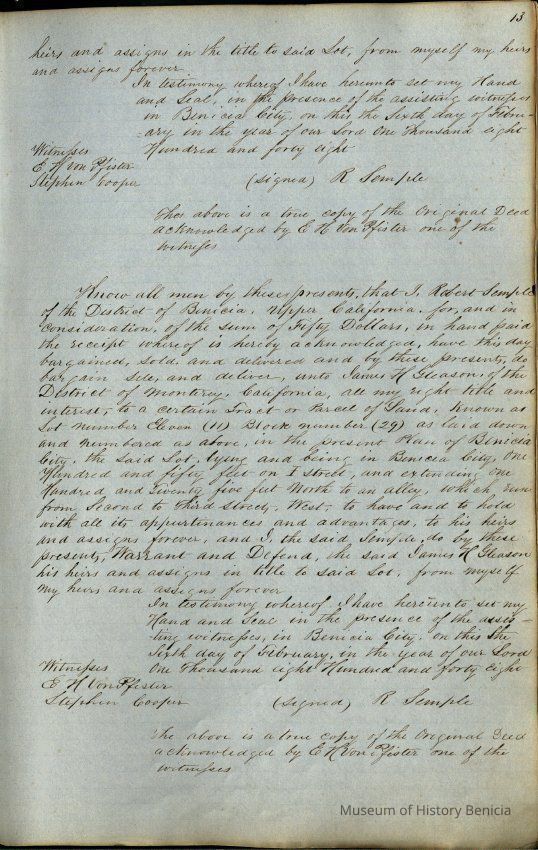 13
heirs and assigns in the title to said Lot, from myself my heirs
and assigns forever
In testimony whereof I have hereunto set my Hand
and Seal, in the presence of the assisting witnesses
in Benicia City, on this the Sixth day of Febru-
-ary in the year of our Lord One thousand eight
Hundred and forty eight
Witnesses
E. H. Von Pfister
Stephen Cooper
(signed) R Semple
The above is a true copy of the Original Deed
acknowledged by E H Von Pfister one of the
witnesses
Know all men by these presents, that I, Robert Semple
of the District of Benicia, Upper California, for, and in
Consideration, of the sum of Fifty Dollars, in hand paid
the receipt whereof is hereby acknowledged, have this day
bargained, Sold, and delivered and by these presents, do
bargain Sell, and deliver, unto James H Gleason, of the
District of Monterey, California, all my right title and
interest, to a certain Tract or Parcel of Land, Known as
Lot number Eleven (11) Block number (29) as laid down
and numbered as above, in the present Plan of Benicia
City, the said Lot, lying and being in Benicia City, One
Hundred and fifty feet on I Street, and extending one
Hundred, and Twenty five feet North to an alley, which runs
from Second to Third Street, West, to have and to hold
with all its appurtinances and advantages, to his heirs
and assigns forever, and I, the said, Semple, do by these
presents, Warrant and Defend, the said James H Gleason
his heirs and assigns in title to said Lot, from myself
my heirs and assigns forever
In testimony whereof, I have hereunto set my
Hand and Seal in the presence of the assis-
-ting witnesses, in Benicia City, on this the
Sixth day of February, in the year of our Lord
One thousand eight Hundred and forty eight
Witnesses
E H Von Pfister
Stephen Cooper
(signed) R Semple
The above is a true copy of the Original Deed
acknowledged by E H Von Pfister one of the
witnesses
Museum of History Benicia